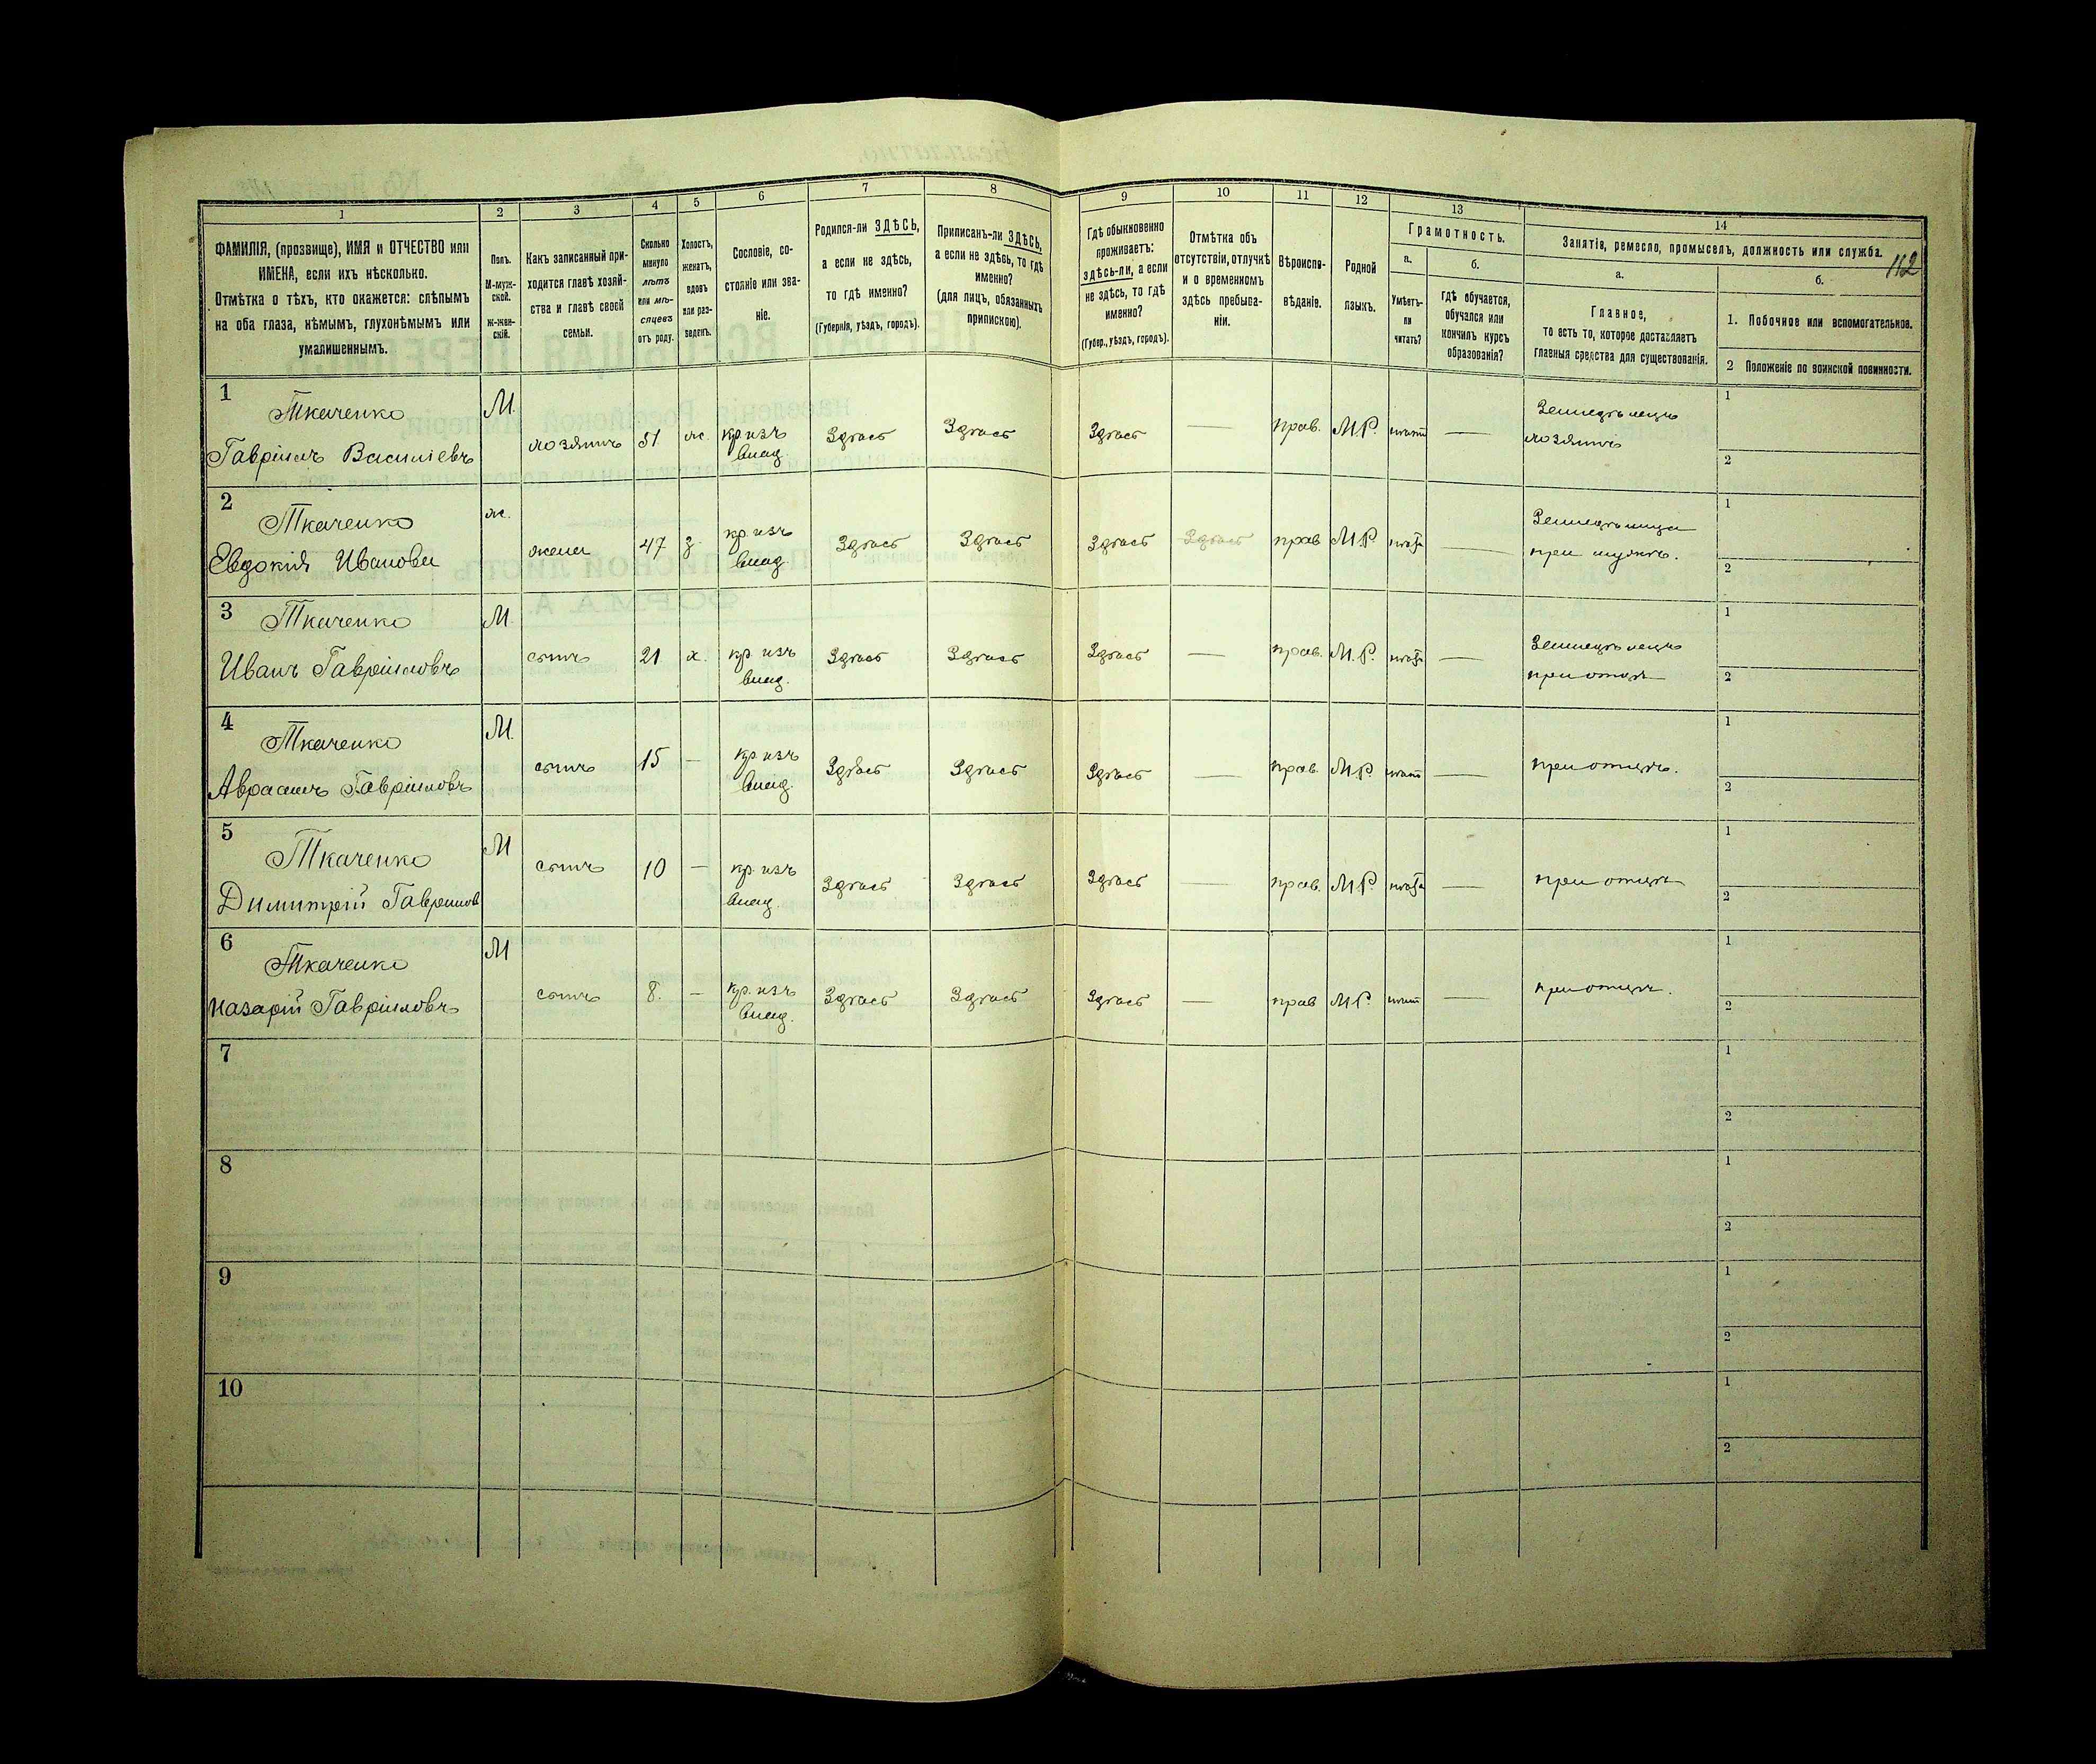 1 2 3 4 5 6 7 8 9 10 11 12 13 14
112
ФАМИЛІЯ, (прозвище), ИМЯ и ОТЧЕСТВО или
ИМЕНА, если ихъ нѣсколько.
Отмѣтка о тѣхъ, кто окажется: слѣпымъ
на оба глаза, нѣмымъ, глухонѣмымъ или
умалишеннымъ.
Полъ.
М-муж-
ской.
Ж-жен-
скій.
Какъ записанный при-
ходится главѣ хозяй-
ства и главѣ своей
семьи.
Сколько
минуло
лѣтъ
или мѣ-
сяцевъ
отъ роду.
Холостъ,
женатъ,
вдовъ
или раз-
веденъ.
Сословіе, со-
стояніе или зва-
ніе.
Родился-ли ЗДѢСЬ,
а если не здѣсь,
то гдѣ именно?
(Губернія, уѣздъ, городъ).
Приписанъ-ли ЗДѢСЬ,
а если не здѣсь, то гдѣ
именно?
(для лицъ, обязанныхъ
припискою).
Гдѣ обыкновенно
проживаетъ:
здѣсь-ли, а если
не здѣсь, то гдѣ
именно?
(Губер., уѣздъ, городъ).
Отмѣтка объ
отсутствіи, отлучкѣ
и о временномъ
здѣсь пребыва-
ніи.
Вѣроиспо-
вѣданіе.
Родной
языкъ.
Грамотность.
а.
Умѣетъ-
ли
читать?
б.
гдѣ обучается,
обучался или
кончилъ курсъ
образованія?
Занятіе, ремесло, промыселъ, должность или служба.
а.
Главное,
то есть то, которое доставляетъ
главныя средства для существованія.
б.
1. Побочное или вспомогательное.
2 Положеніе по воинской повинности.
1 Ткаченко М. Земледѣлецъ 1
Гавріилъ Васильевъ хозяинъ 51 ж. кр. изъ Здѣсь Здѣсь Здѣсь — прав. М.Р. — хозяинъ
влад. 2
2 Ткаченко ж. Земледѣлица 1
Евдокія Иванова жена 47 з. кр. изъ Здѣсь Здѣсь Здѣсь Здѣсь прав М.Р. — при мужѣ.
влад. 2
3 Ткаченко М. Земледѣлецъ 1
Иванъ Гавріиловъ сынъ 21 х. кр. изъ Здѣсь Здѣсь Здѣсь — прав. М.Р. — при отцѣ
влад. 2
4 Ткаченко М. 1
Авраамъ Гавріиловъ сынъ 15 — кр. изъ Здѣсь Здѣсь Здѣсь — прав. М.Р. — при отцѣ.
влад. 2
5 Ткаченко М 1
Димитрій Гавріилов сынъ 10 — кр. изъ Здѣсь Здѣсь Здѣсь — прав. М.Р. — при отцѣ
влад. 2
6 Ткаченко М 1
Назарій Гавріиловъ сынъ 8. — кр. изъ Здѣсь Здѣсь Здѣсь — прав М.Р. — при отцѣ.
влад. 2
7 1
2
8 1
2
9 1
2
10 1
2